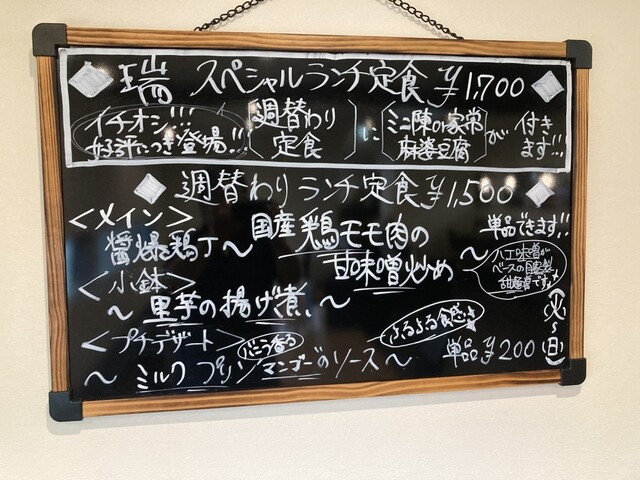 瑞 スペシャルランチ定食 ¥1,700
イチオシ!!!
好評につき登場!!
週替わり
定食
に
ミニ陳の家常
麻婆豆腐
が
付き
ます!!!
週替わりランチ定食 ¥1,500
<メイン>
醤爆鶏丁〜国産鶏モモ肉の
甘味噌炒め〜
単品できます!!
八丁味噌が
ベースの自家製
甜麺醤です
<小鉢>
〜里芋の揚げ煮〜
<プチデザート>
バニラ香る
ふるふる食感
〜ミルクプリン マンゴーのソース〜
単品 ¥200
(火)
〜
(日)